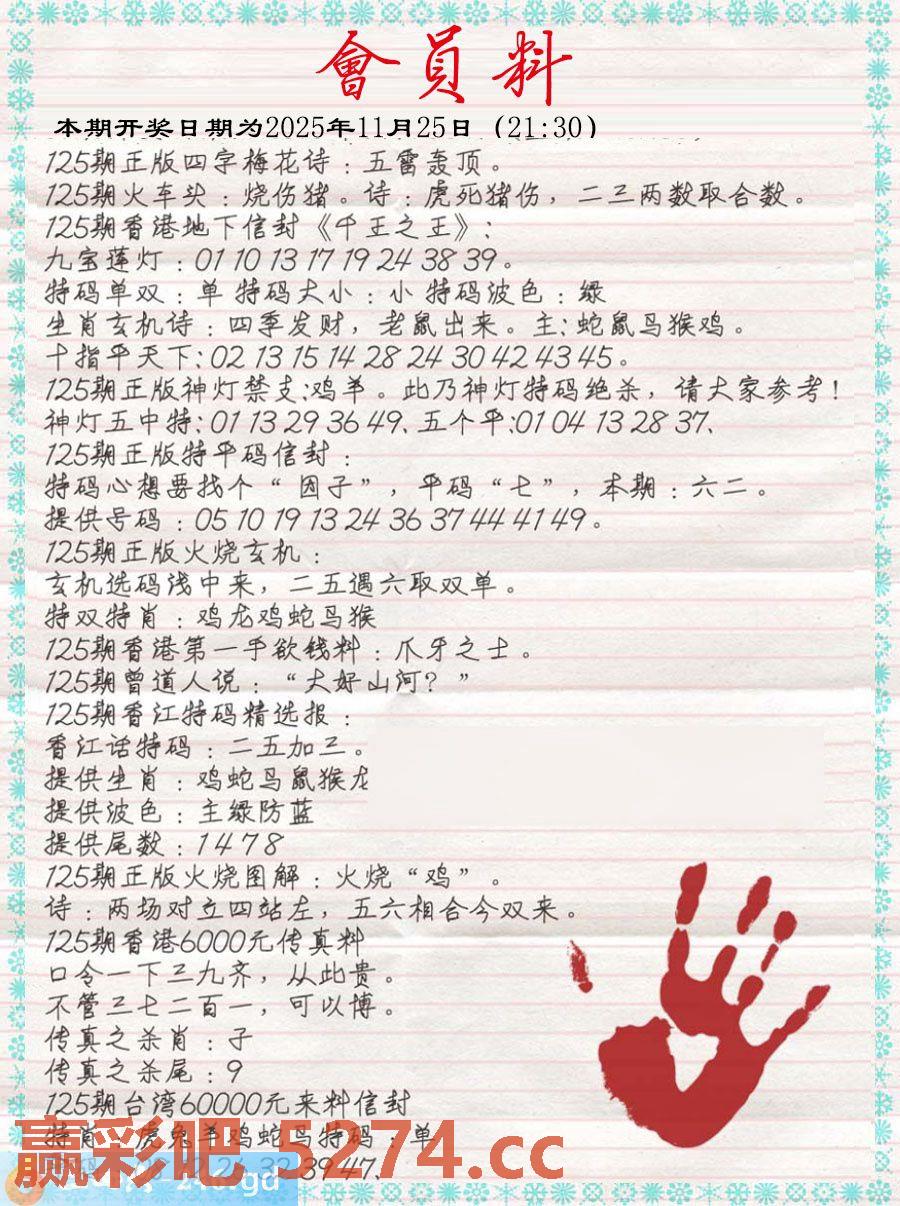 會員料
本期开奖日期为2025年11月25日（21:30）
125期正版四字梅花诗：五雷轰顶。
125期火车头：烧伤猪。诗：虎死猪伤，二三两数取合数。
125期香港地下信封《千王之王》：
九宝莲灯：01 10 13 17 19 24 38 39。
特码单双：单 特码大小：小 特码波色：绿
生肖玄机诗：四季发财，老鼠出来。主：蛇鼠马猴鸡。
十指平天下：02 13 15 14 28 24 30 42 43 45。
125期正版神灯禁支：鸡羊。此乃神灯特码绝杀，请大家参考！
神灯五中特：01 13 29 36 49、五个平：01 04 13 28 37、
125期正版特平码信封：
特码心想要找个“因子”，平码“七”，本期：六二。
提供号码：05 10 19 13 24 36 37 44 41 49。
125期正版火烧玄机：
玄机选码浅中来，二五遇六取双单。
特双特肖：鸡龙鸡蛇马猴
125期香港第一手欲钱料：爪牙之士。
125期曾道人说：“大好山河？”
125期香江特码精选报：
香江话特码：二五加三。
提供生肖：鸡蛇马鼠猴龙
提供波色：主绿防蓝
提供尾数：1 4 7 8
125期正版火烧图解：火烧“鸡”。
诗：两场对立四站左，五六相合今双来。
125期香港6000元传真料
口令一下三九齐，从此贵。
不管三七二百一，可以博。
传真之杀肖：子
传真之杀尾：9
125期台湾60000元来料信封
特肖：虎兔羊鸡蛇马特码：单
32 39 47、
赢彩吧.5274.cc